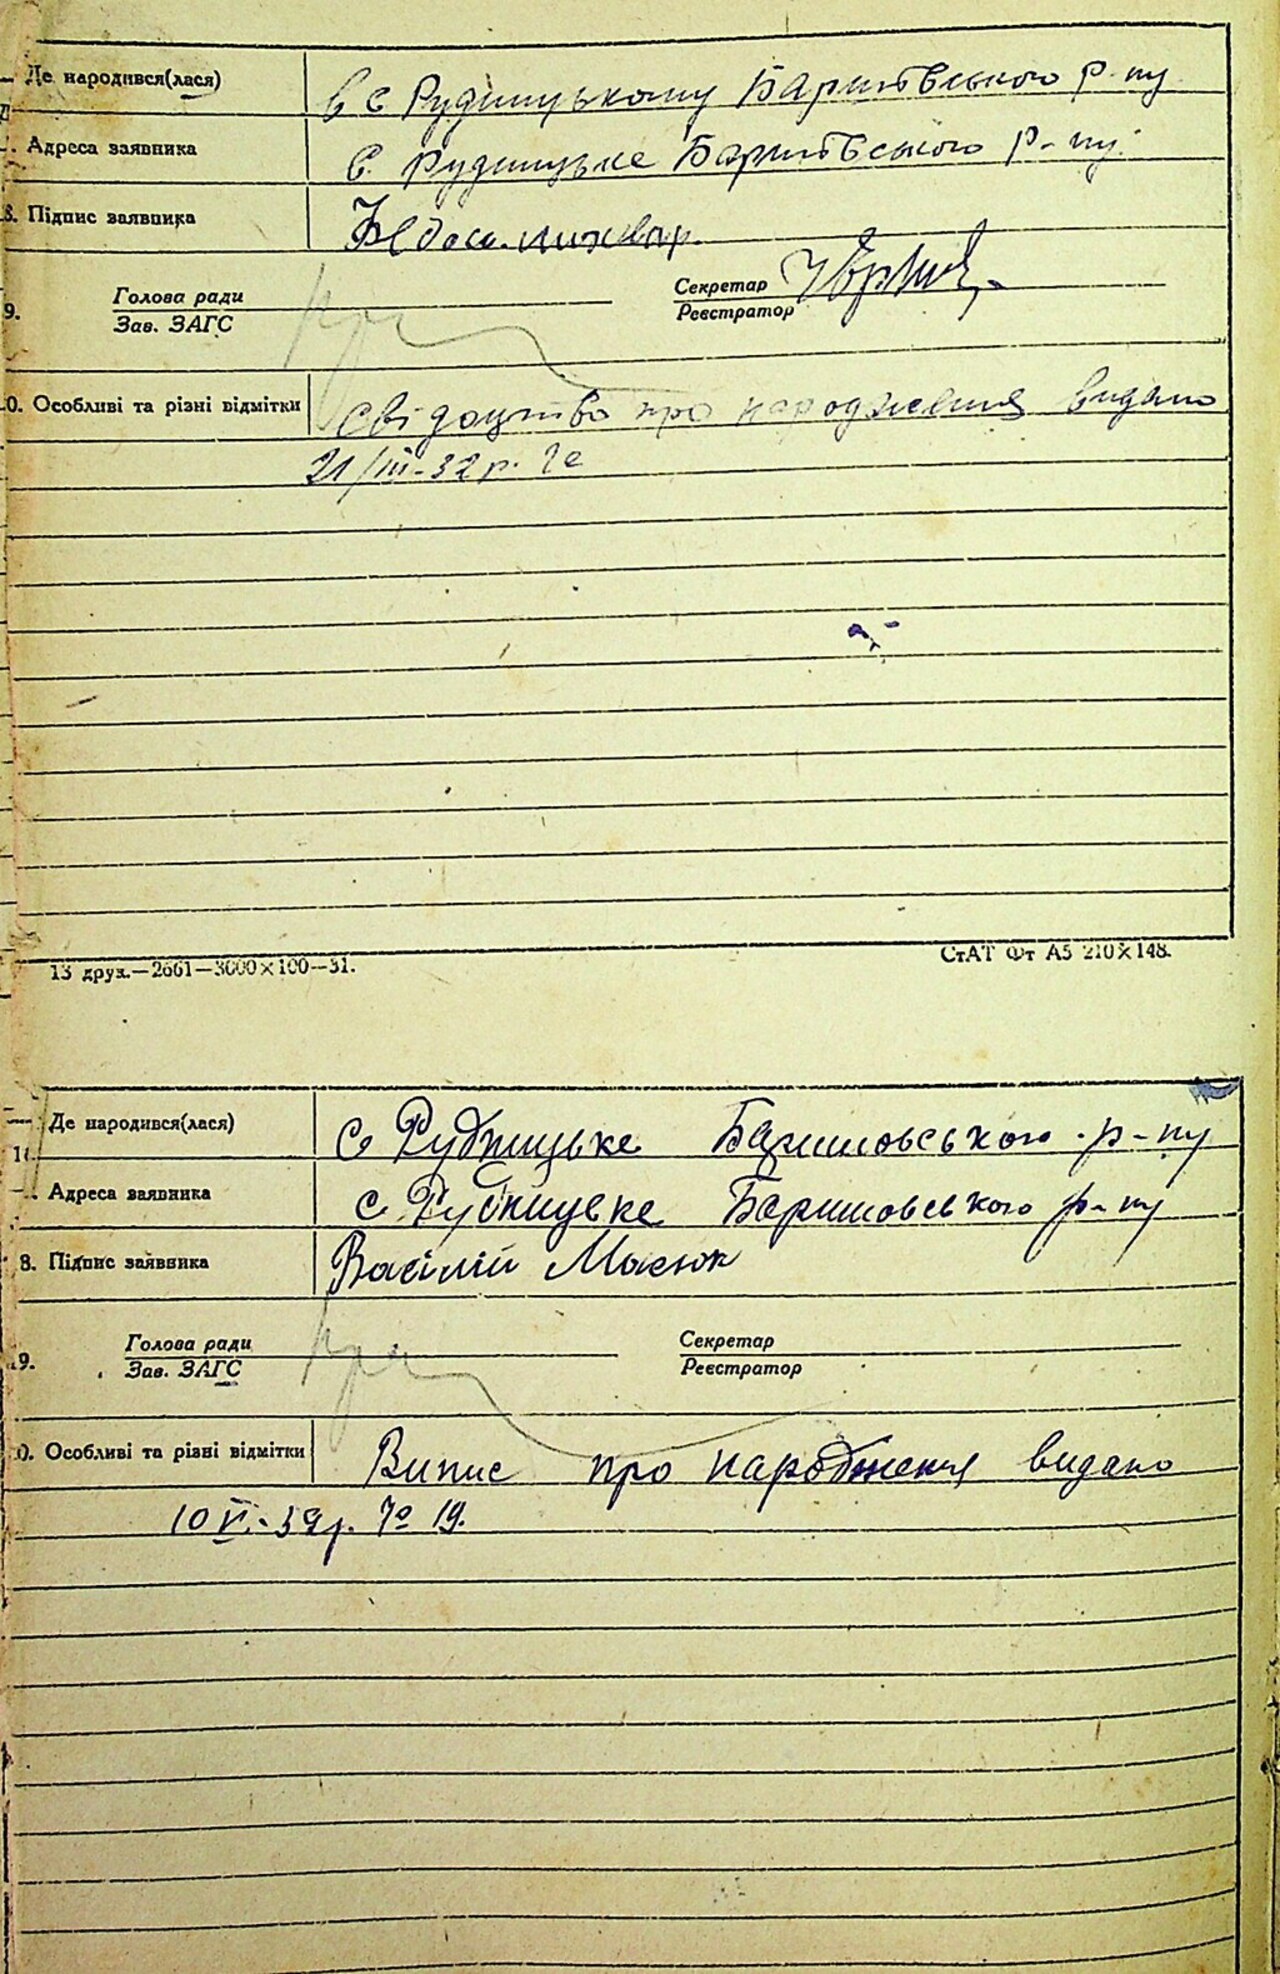 Де народився(лася) в с Рудницькому Баришівського р-ну
Адреса заявника с. Рудницьке Баришівського р-ну
8. Підпис заявника
Голова ради Секретар
9. Зав. ЗАГС Реєстратор
0. Особливі та різні відмітки Свідоцтво про народження видано
21/III-32 р.
13 друк.—2661—3000×100—31. СтАТ Фт А5 210×148.
Де народився(лася) с Рудницьке Баришовського р-ну
Адреса заявника с Рудницьке Баришовського р-ну
8. Підпис заявника Василій Масюк
Голова ради Секретар
9. Зав. ЗАГС Реєстратор
0. Особливі та різні відмітки Випис про народження видано
19.